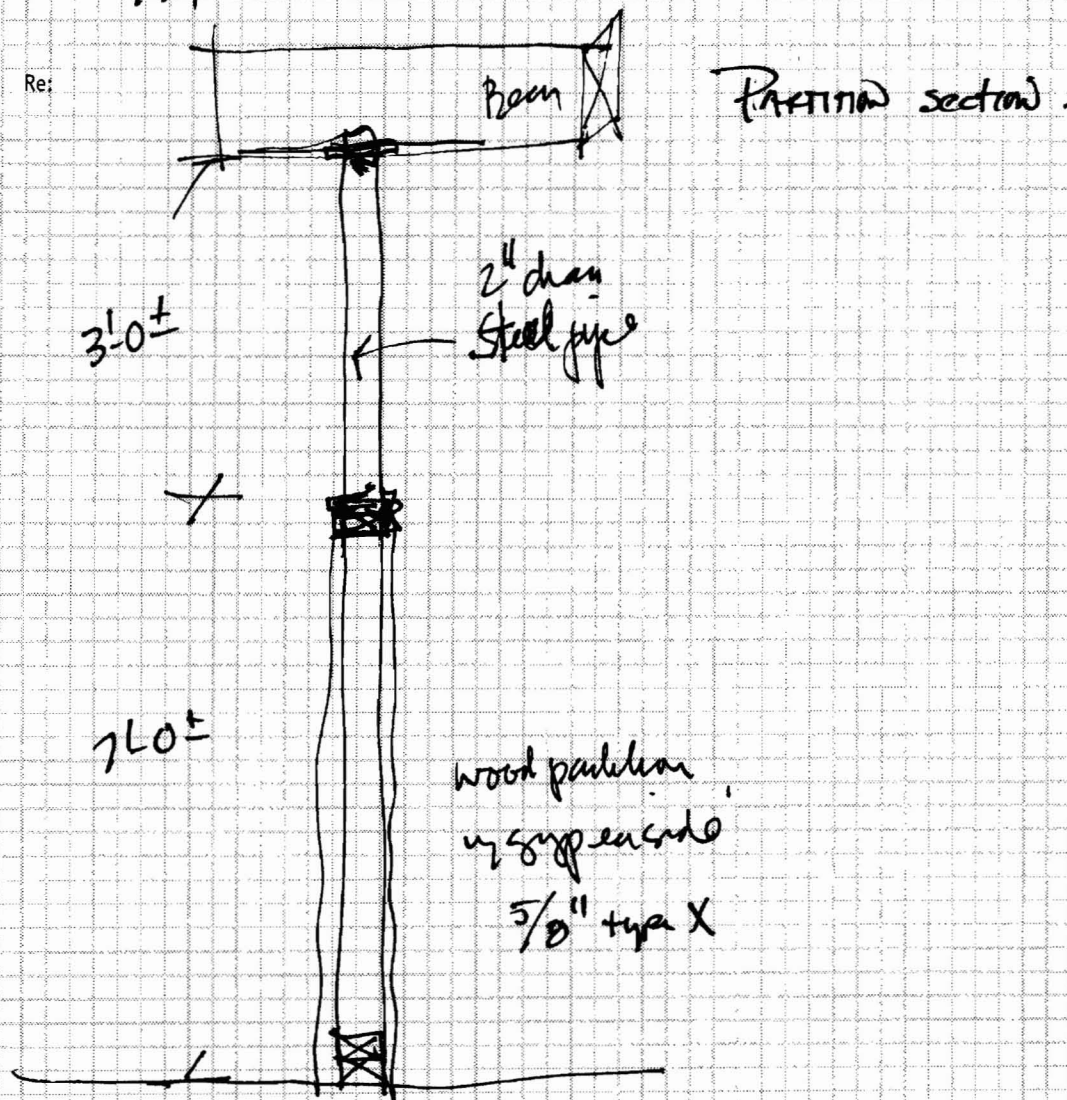 Re:
Beam
PARTITION section.
2" diam
Steel pipe
3'-0±
7'-0±
wood partition
w/ gyp ea side
5/8" type X